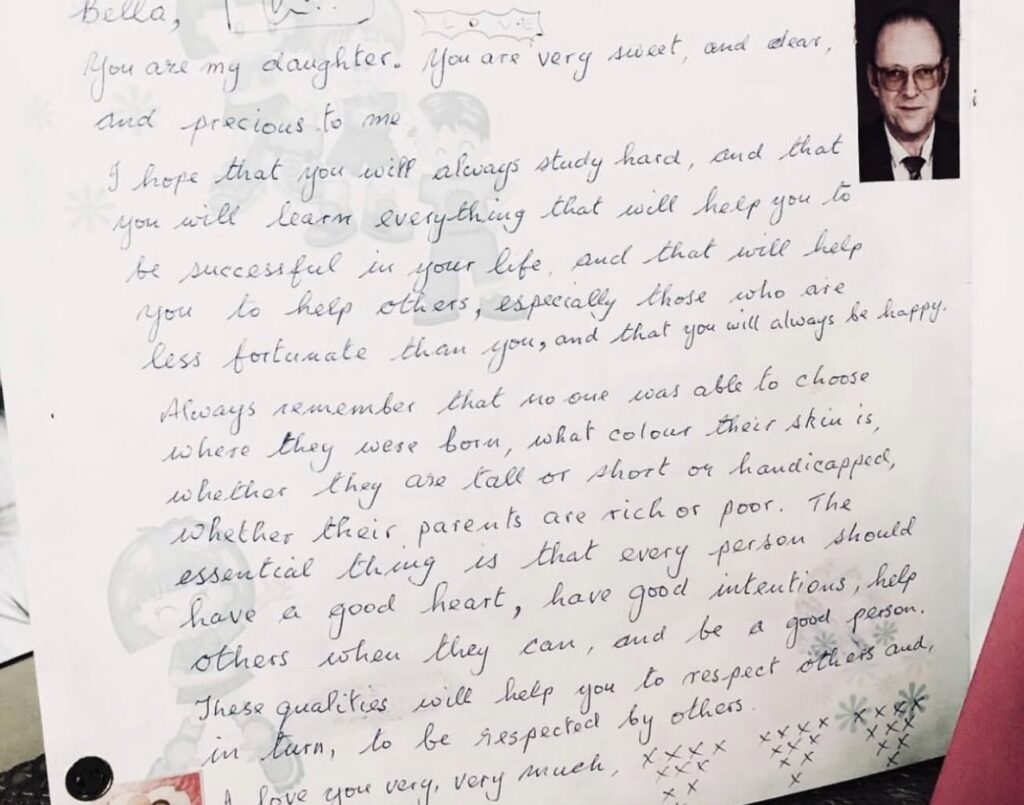 Bella,
LOVE
You are my daughter. You are very sweet, and dear,
and precious to me
I hope that you will always study hard, and that
you will learn everything that will help you to
be successful in your life, and that will help
you to help others, especially those who are
less fortunate than you, and that you will always be happy.
Always remember that no one was able to choose
where they were born, what colour their skin is,
whether they are tall or short or handicapped,
whether their parents are rich or poor. The
essential thing is that every person should
have a good heart, have good intentions, help
others when they can, and be a good person.
These qualities will help you to respect others and,
in turn, to be respected by others.
I love you very, very much,
xxxx xxxx xxxx
xxx xxx xxx
xx xx xx
x x x